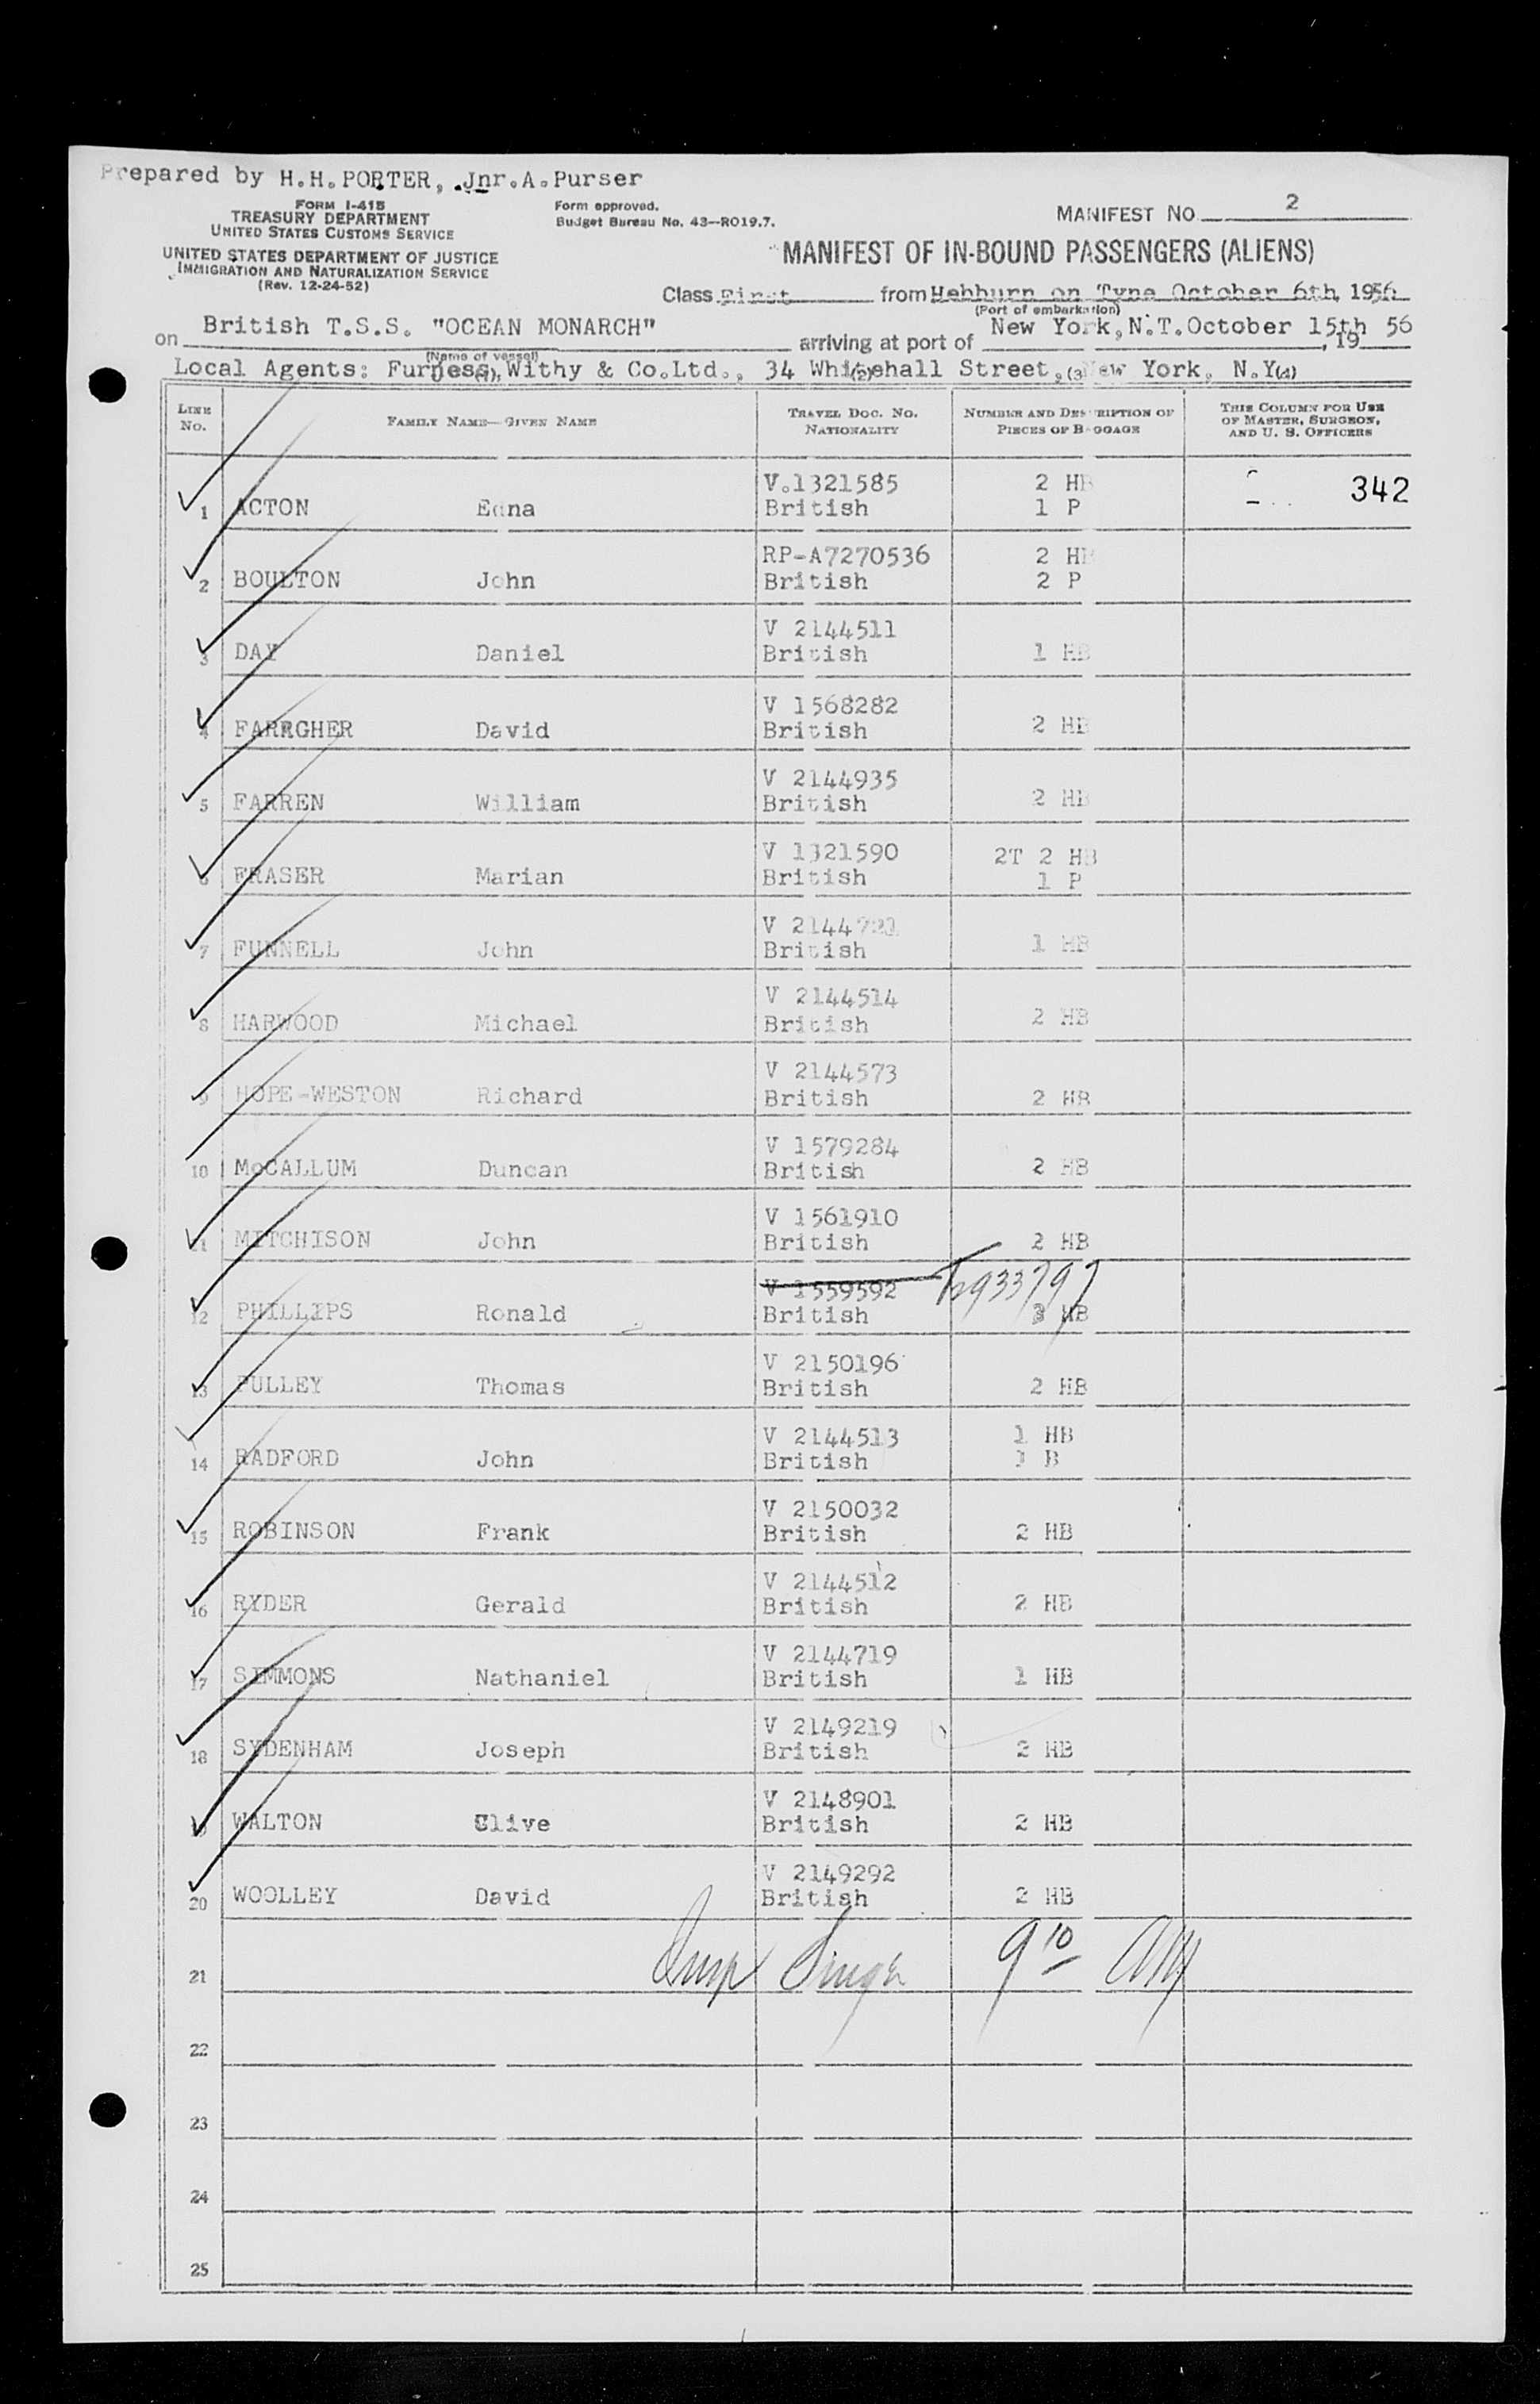 Prepared by H.H.PORTER, Jnr.A.Purser
FORM I-415
TREASURY DEPARTMENT
UNITED STATES CUSTOMS SERVICE
UNITED STATES DEPARTMENT OF JUSTICE
IMMIGRATION AND NATURALIZATION SERVICE
(Rev. 12-24-52)
Form approved.
Budget Bureau No. 43—RO19.7.
MANIFEST NO. 2
MANIFEST OF IN-BOUND PASSENGERS (ALIENS)
Class First from Hebburn on Tyne October 6th, 1956
(Port of embarkation)
on British T.S.S. "OCEAN MONARCH" arriving at port of New York, N.T. October 15th, 19 56
(Name of vessel)
Local Agents: Furness, Withy & Co.Ltd., 34 Whitehall Street, New York, N.Y.
(1) (2) (3) (4)
LINE No. FAMILY NAME—GIVEN NAME TRAVEL DOC. NO. NATIONALITY NUMBER AND DESCRIPTION OF PIECES OF BAGGAGE THIS COLUMN FOR USE OF MASTER, SURGEON, AND U. S. OFFICERS
V.1321585 2 HB 342
1 ACTON Edna British 1 P
RP-A7270536 2 HB
2 BOULTON John British 2 P
V 2144511
3 DAY Daniel British 1 HB
V 1568282
4 FARRGHER David British 2 HB
V 2144935
5 FARREN William British 2 HB
V 1321590 2T 2 HB
6 FRASER Marian British 1 P
V
7 FUNNELL John British 1 HB
V 2144514
8 HARWOOD Michael British 2 HB
V 2144573
9 HOPE-WESTON Richard British 2 HB
V 1579284
10 McCALLUM Duncan British 2 HB
V 1561910
11 MITCHISON John British 2 HB
V 1559592
12 PHILLIPS Ronald British 3 HB
V 2150196
13 PULLEY Thomas British 2 HB
V 2144513 1 HB
14 RADFORD John British 1 B
V 2150032
15 ROBINSON Frank British 2 HB
V 2144512
16 RYDER Gerald British 2 HB
V 2144719
17 SIMMONS Nathaniel British 1 HB
V 2149219
18 SYDENHAM Joseph British 2 HB
V 2148901
19 WALTON Clive British 2 HB
V 2149292
20 WOOLLEY David British 2 HB
21 Insp Singer 9 10 AM
22
23
24
25